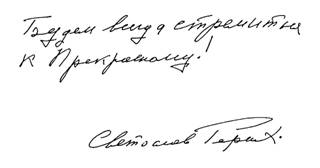 Будем всегда стремиться
к Прекрасному!
Святослав Рерих.